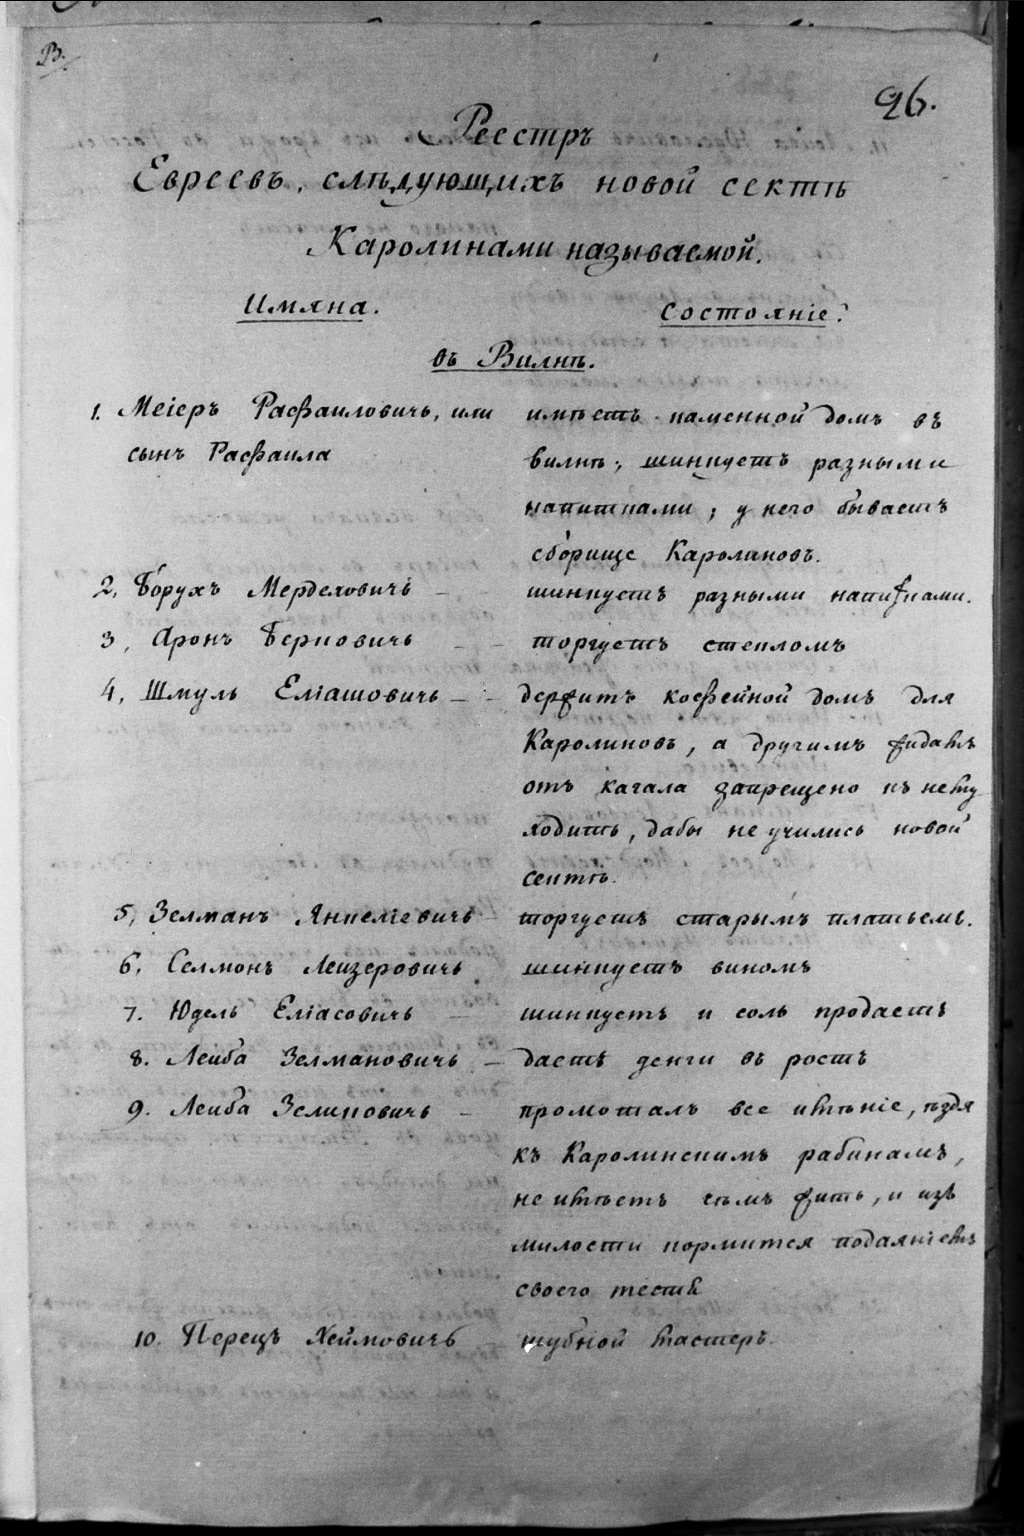 В.
96.
Реестръ
Евреевъ, слѣдующихъ новой сектѣ
Каролинами называемой.
Имяна. Состояніе.
въ Вилнѣ.
1. Меіеръ Расфаиловичъ, или имѣетъ каменной домъ въ
сынъ Расфаила Вилнѣ, шинкуетъ разными
напитками; у него бываетъ
сборище Каролиновъ.
2, Борухъ Мерделовичь — — шинкуетъ разными напитками.
3, Аронъ Берковичь — — торгуетъ стекломъ
4, Шмуль Еліашовичь — — держитъ кофейной домъ для
Каролиновъ, а другимъ жидамъ
отъ кагала запрещено къ нему
ходить, дабы не учились новой
сектѣ.
5, Зелманъ Янкеліевичь — торгуетъ старымъ платьемъ.
6, Селмонъ Леизеровичь шинкуетъ виномъ
7. Юдель Еліасовичь — шинкуетъ и соль продаетъ
8. Леиба Зелмановичь — даетъ денги въ ростъ
9. Леиба Зеликовичь — промоталъ все имѣніе, ѣздя
къ Каролинскимъ рабинамъ,
не имѣетъ чѣмъ жить, и изъ
милости кормится подаяніемъ
своего тестя
10. Перецъ Хеймовичь — шубной мастеръ.